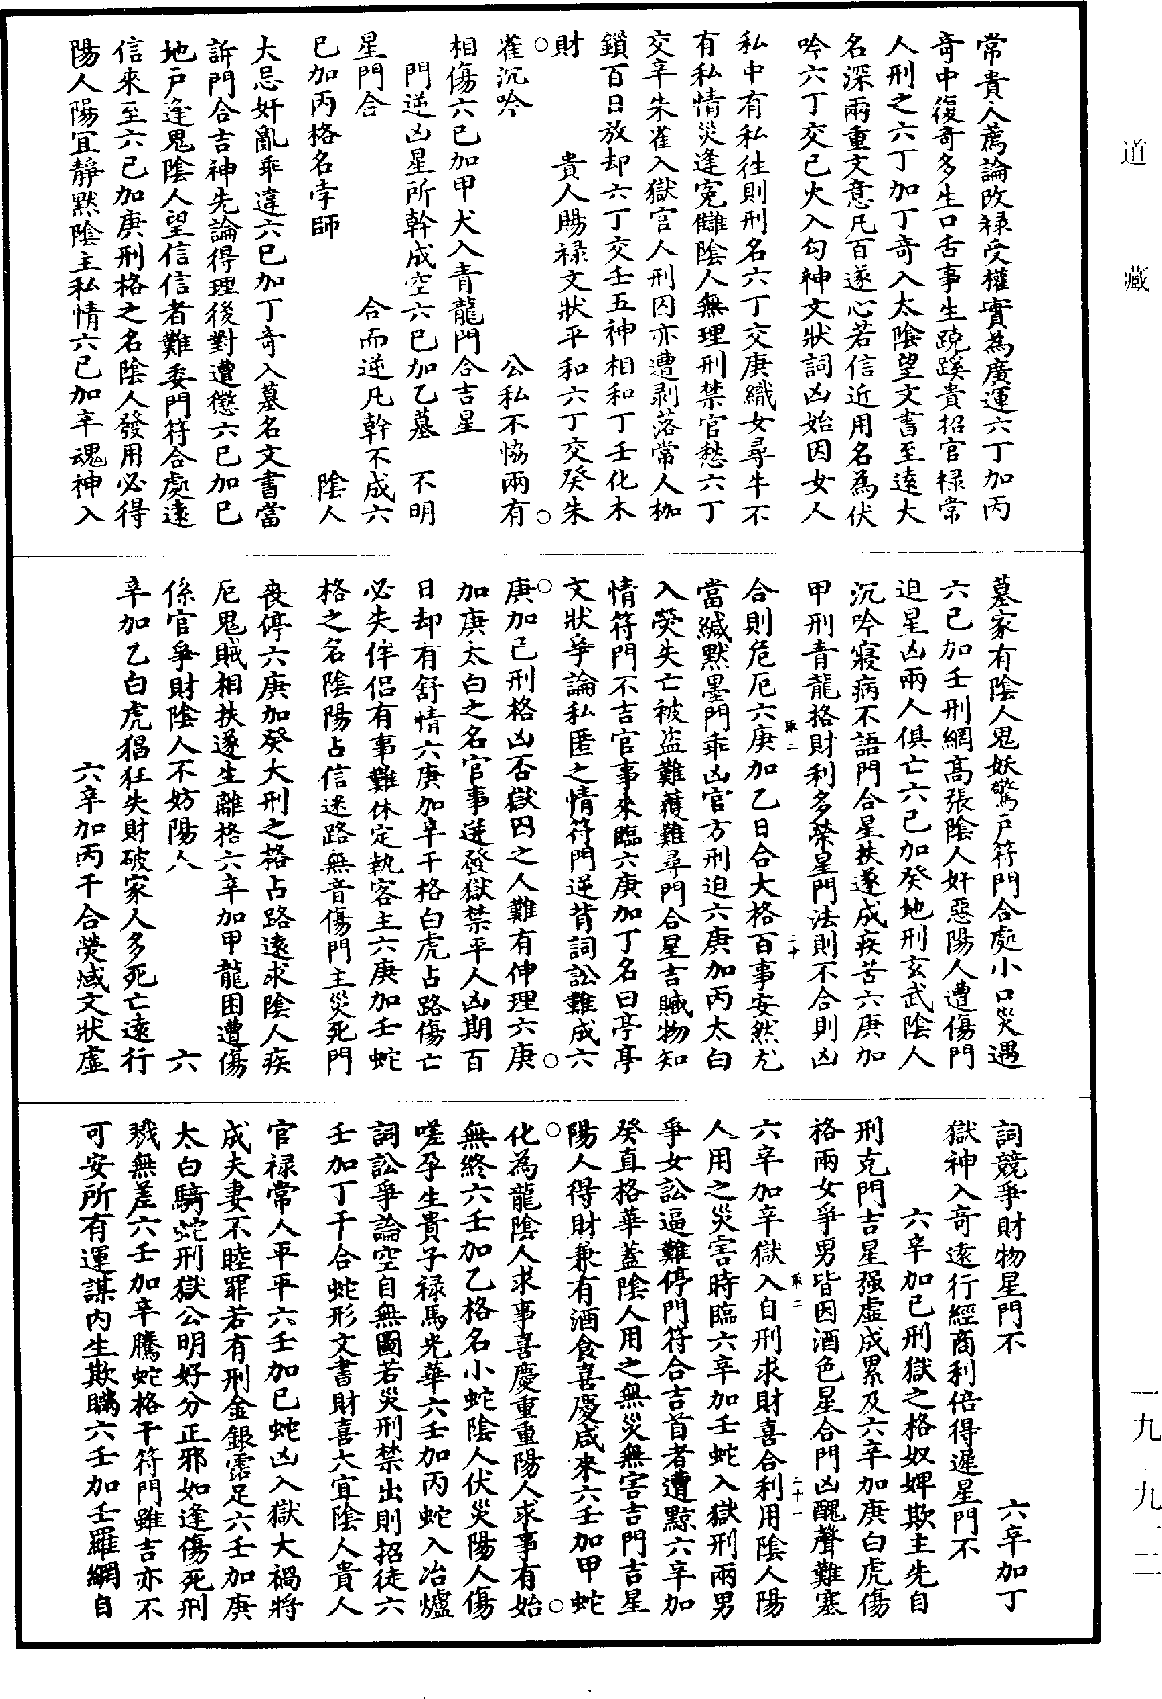 道藏
常貴人薦論改祿受權實為廣運六丁加丙
奇中復奇多生口舌事生蹺蹊貴招官祿常
人刑之六丁加丁奇入太陰望文書至遠大
名深兩重文意凡百遂心若信近用名為伏
吟六丁交已火入勾神文狀詞凶始因女人
私中有私往則刑名六丁交庚織女尋牛不
有私情災逢冤讎陰人無理刑禁官愁六丁
交辛朱雀入獄官人刑囚亦遭剥落常人枷
鎖百日放却六丁交壬五神相和丁壬化木
財　　貴人賜祿文狀平和六丁交癸朱
雀沉吟　　公私不恊兩有
相傷六已加甲犬入青龍門合吉星
門逆凶星所幹成空六已加乙墓　不明
星門合　　合而逆凡幹不成六
已加丙格名孛師　　陰人
大忌奸亂乖違六已加丁奇入墓名文書當
訴門合吉神先論得理後對遭愆六已加已
地戶逢鬼陰人望信信者難委門符合處遠
信來至六已加庚刑格之名陰人發用必得
陽人陽宜靜黙陰主私情六已加辛魂神入
墓家有陰人鬼妖驚戶符門合處小口災遇
六已加壬刑網高張陰人奸惡陽人遭傷門
迫星凶兩人俱亡六已加癸地刑玄武陰人
沉吟寢病不語門合星扶遂成疾苦六庚加
甲刑青龍格財利多榮星門法則不合則凶
合則危厄六庚加乙日合大格百事安然尤
當緘黙墨門乖凶官方刑迫六庚加丙太白
入熒失亡被盜難獲難尋門合星吉贓物知
情符門不吉官事來臨六庚加丁名曰亭亭
文狀爭論私匿之情符門逆背詞訟難成六
庚加已刑格凶否獄囚之人難有伸理六庚
加庚太白之名官事逆發獄禁平人凶期百
日却有舒情六庚加辛干格白虎占路傷亡
必失伴侣有事難休定執客主六庚加壬蛇
格之名陰陽占信迷路無音傷門主災死門
丧停六庚加癸大刑之格占路遠求陰人疾
厄鬼賊相扶遂生離格六辛加甲龍困遭傷
係官爭財陰人不妨陽人　　六
辛加乙白虎猖狂失財破家人多死亡遠行
六辛加丙干合熒惑文狀虛
詞競爭財物星門不　　六辛加丁
獄神入奇遠行經商利倍得遲星門不
六辛加已刑獄之格奴婢欺主先自
刑克門吉星强虛成累及六辛加庚白虎傷
格兩女爭男皆因酒色星合門凶醜聲難塞
六辛加辛獄入自刑求財喜合利用陰人陽
人用之災害時臨六辛加壬蛇入獄刑兩男
爭女訟逼難停門符合吉首者遭黥六辛加
癸直格華蓋陰人用之無災無害吉門吉星
陽人得財兼有酒食喜慶咸來六壬加甲蛇
化為龍陰人求事喜慶重重陽人求事有始
無終六壬加乙格名小蛇陰人伏災陽人傷
嗟孕生貴子祿馬光華六壬加丙蛇入冶爐
詞訟爭論空自無圖若災刑禁出則招徒六
壬加丁干合蛇形文書財喜大宜陰人貴人
官祿常人平平六壬加已蛇凶入獄大禍將
成夫妻不睦罪若有刑金銀需足六壬加庚
太白騎蛇刑獄公明好分正邪如逢傷死刑
戮無差六壬加辛騰蛇格干符門雖吉亦不
可安所有運謀内生欺瞞六壬加壬羅網自
一九·九二